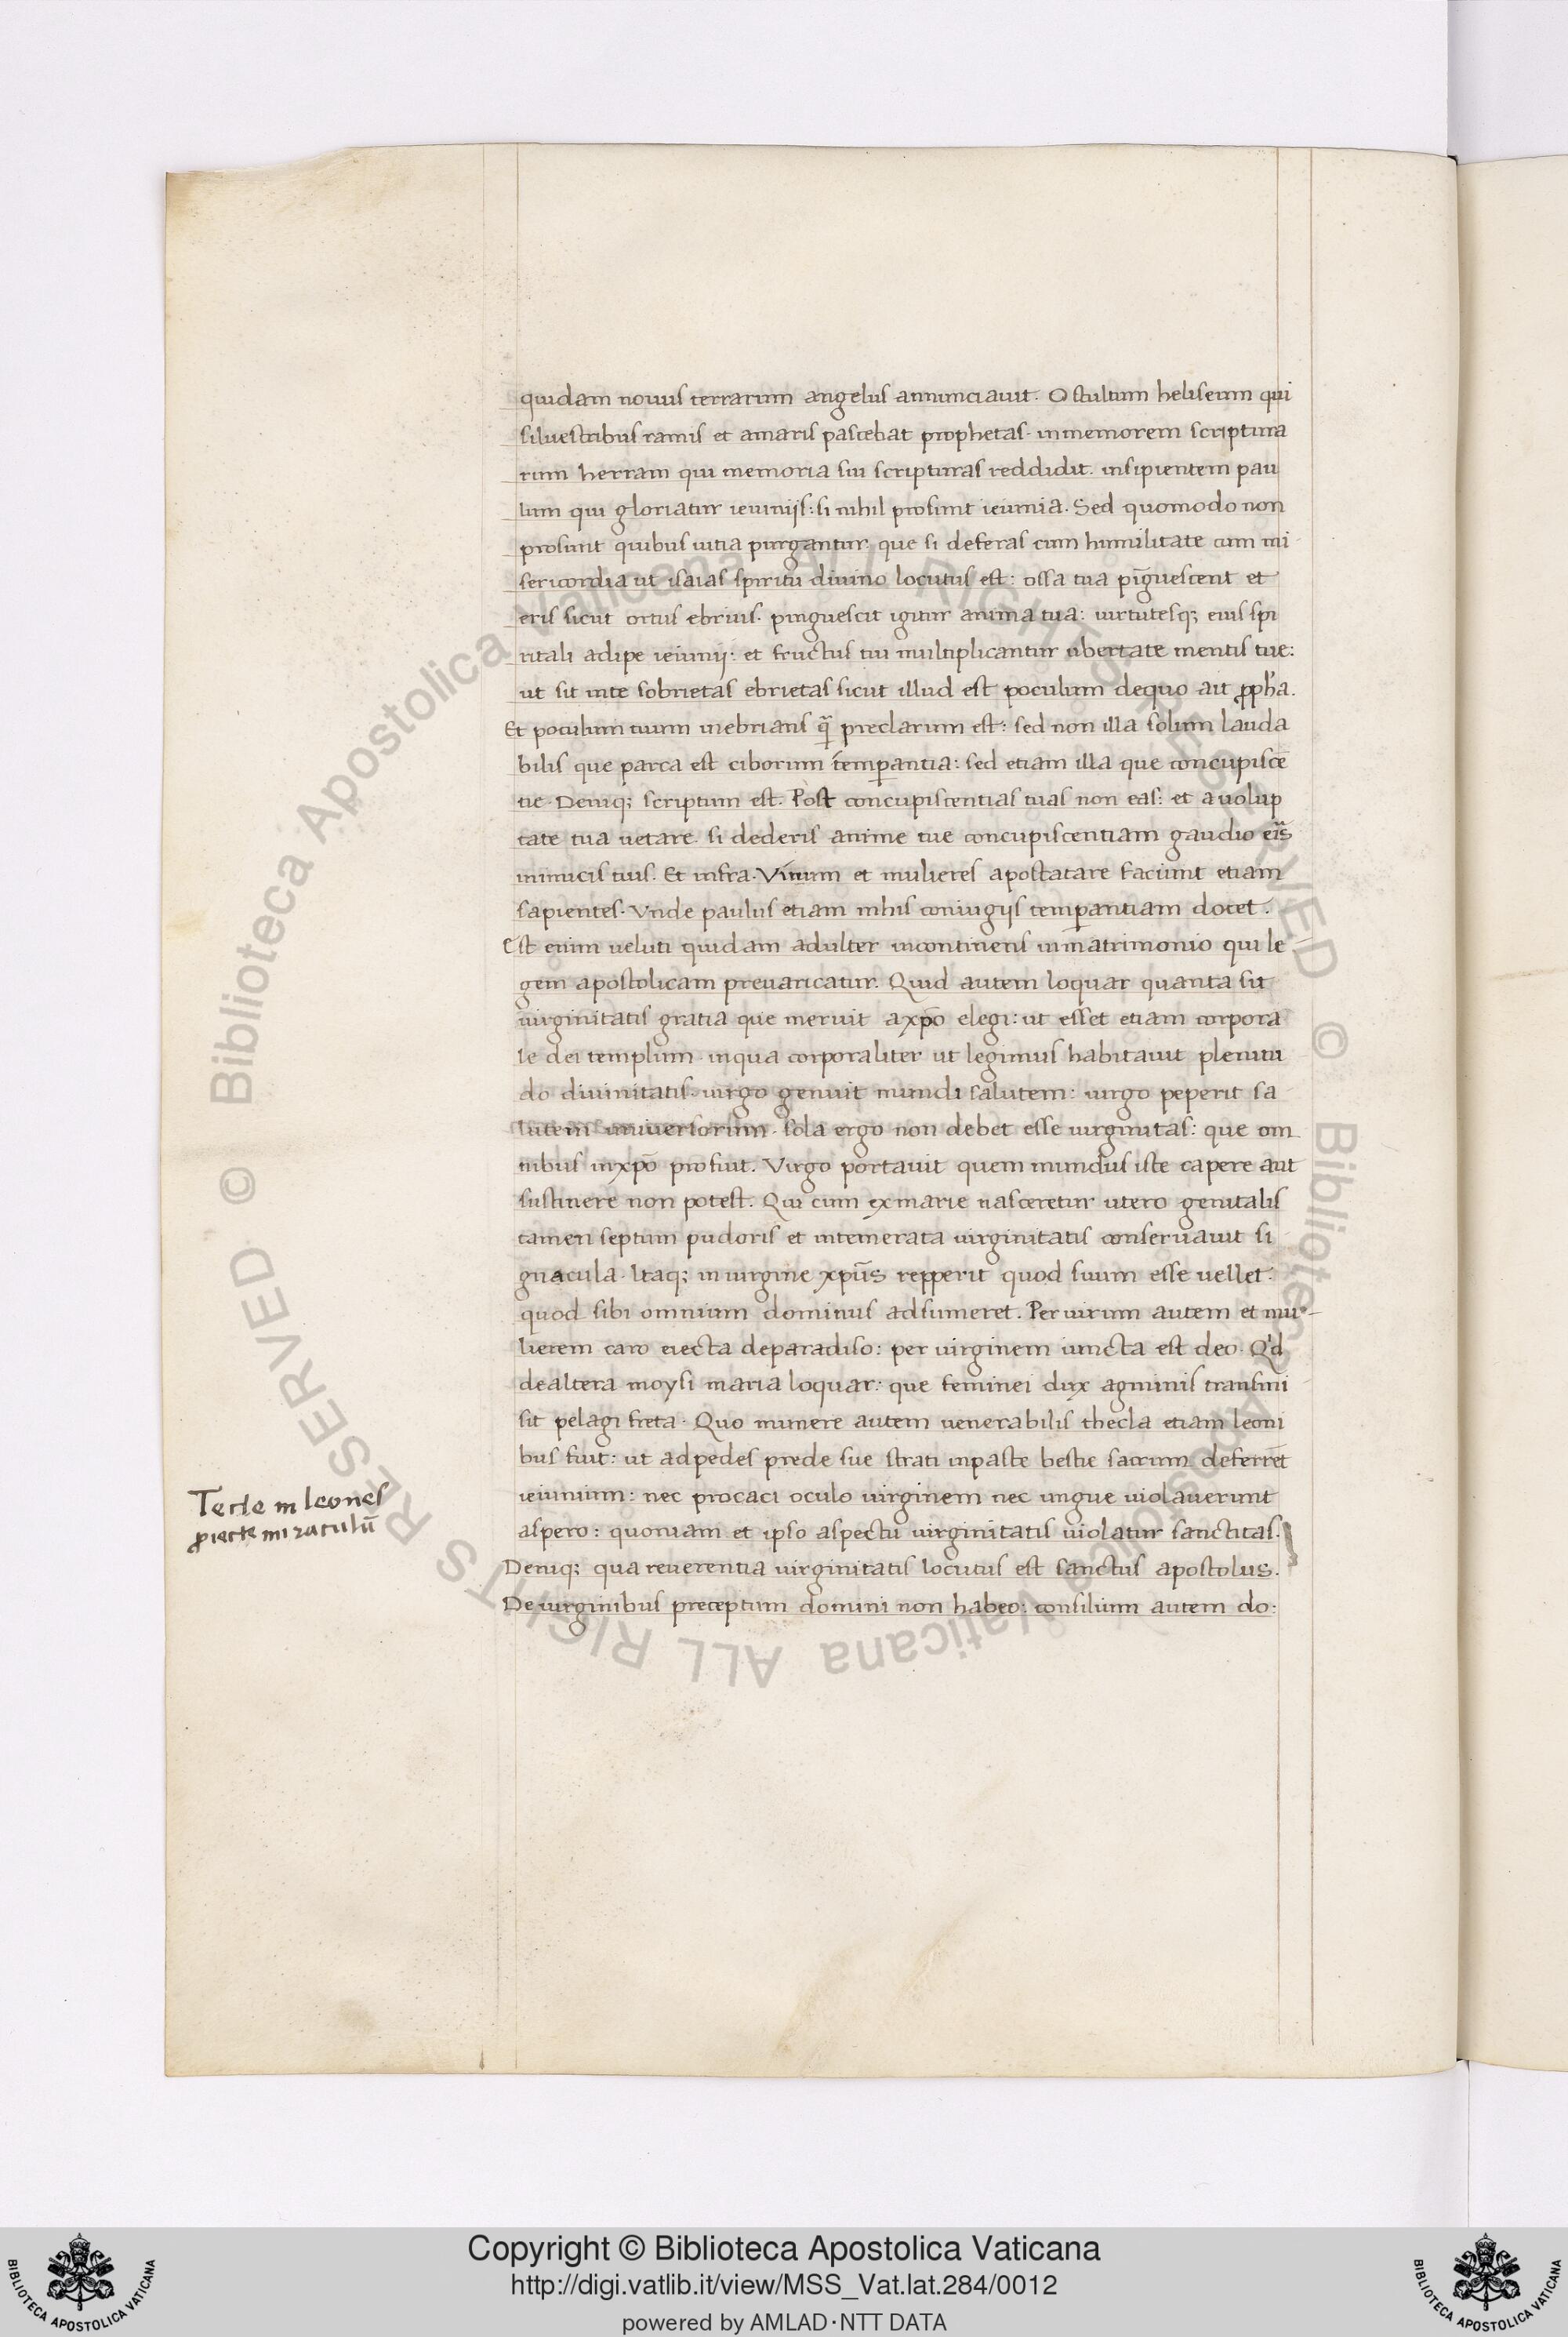 quidam nouus terrarum angelus annunciauit. O stultum heliseum qui
siluestribus ramis et amaris pascebat prophetas. inmemorem scriptura
rum herram qui memoria sui scripturas reddidit. insipientem pau
lum qui gloriatur ieiuniis: si nihil prosunt ieiunia. Sed quomodo non
prosunt quibus uitia purgantur. que si deferas cum humilitate cum mi
sericordia ut isaias spiritu diuino locutus est: ossa tua pīguescent et
eris sicut ortus ebrius. pinguescit igitur anima tua: uirtutesq; eius spi
ritali adipe ieiunij: et fructus tui multiplicantur ubertate mentis tue:
ut sit inte sobrietas ebrietas sicut illud est poculum dequo ait ꝓph̄a.
Et poculum tuum inebrians q̄ preclarum est: sed non illa solum lauda
bilis que parca est ciborum temꝑantia: sed etiam illa que concupiscē
tie. Deniq; scriptum est. Post concupiscentias tuas non eas: et a uolup
tate tua uetare. si dederis anime tue concupiscentiam gaudio eīs
inimicis tuis. Et infra. Vinum et mulieres apostatare faciunt etiam
sapientes. Vnde paulus etiam inhis coniugijs temꝑantiam docet.
Est enim ueluti quidam adulter incontinens inmatrimonio qui le
gem apostolicam preuaricatur. Quid autem loquar quanta sit
uirginitatis gratia que meruit axp̄o elegi: ut esset etiam corpora
le dei templum. inqua corporaliter ut legimus habitauit plenitu
do diuinitatis. uirgo genuit mundi salutem: uirgo peperit sa
lutem uniuersorum. sola ergo non debet esse uirginitas: que om
nibus inxp̄o profuit. Virgo portauit quem mundus iste capere aut
sustinere non potest. Qui cum exmarie nasceretur utero genitalis
tamen septum pudoris et intemerata uirginitatis conseruauit si
gnacula. Itaq; in uirgine xpūs repperit quod suum esse uellet.
quod sibi omnium dominus adsumeret. Per uirum autem et mu-
lierem caro eiecta deparadiso: per uirginem iuncta est deo. Q'd
dealtera moysi maria loquar: que feminei dux agminis transmi
sit pelagi freta. Quo munere autem uenerabilis thecla etiam leoni
bus fuit: ut adpedes prede sue strati inpaste bestie sacrum deferret
ieiunium: nec procaci oculo uirginem nec ungue uiolauerunt
aspero: quoniam et ipso aspectu uirginitatis uiolatur sanctitas.
Deniq; qua reuerentia uirginitatis locutus est sanctus apostolus.
De uirginibus preceptum domini non habeo: consilium autem do:
Tecle in leones
ꝓiecte miraculū
Copyright © Biblioteca Apostolica Vaticana
http://digi.vatlib.it/view/MSS_Vat.lat.284/0012
powered by AMLAD·NTT DATA
BIBLIOTECA APOSTOLICA VATICANA
BIBLIOTECA APOSTOLICA VATICANA
© Biblioteca Apostolica Vaticana ALL RIGHTS RESERVED © Biblioteca Apostolica Vaticana ALL RIGHTS RESERVED